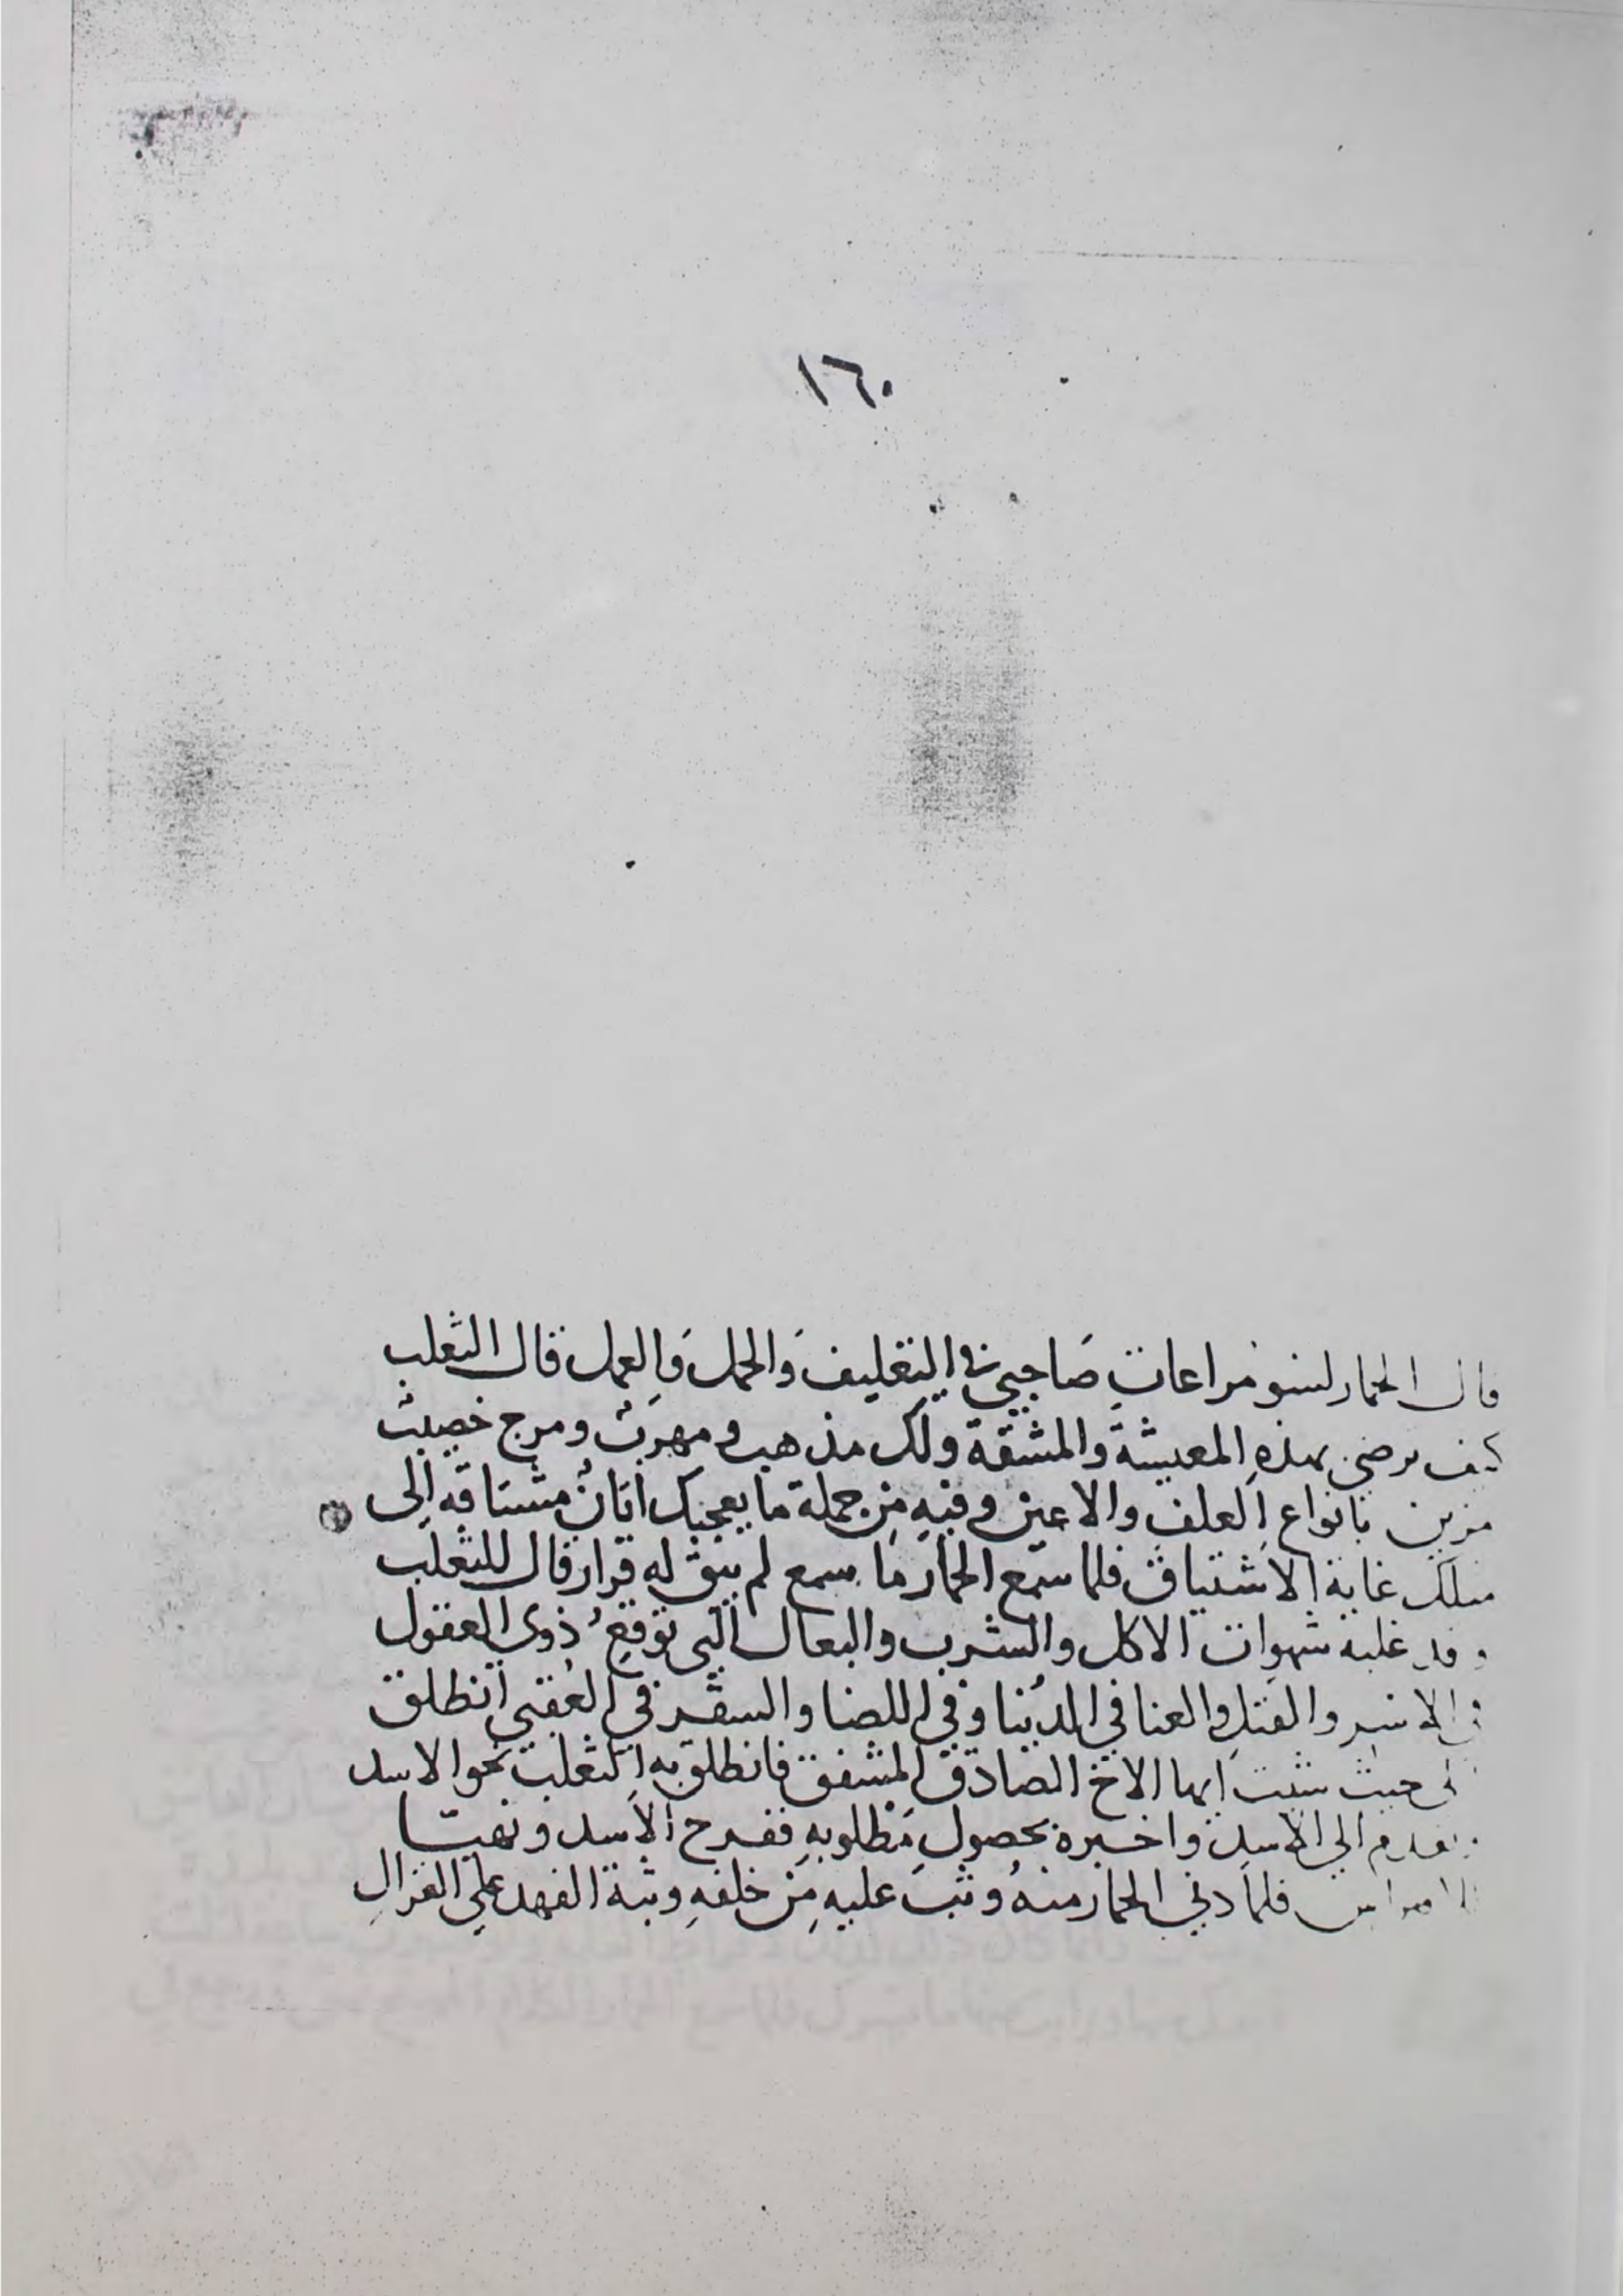 ١٦٠
قال الحمار لسو مراعاتِ صَاحِبي في التعليف وَالحمل وَالعمل قال الثعلب
كيف ترضى بهذهِ المعيشة والمشقة ولك مذهب ومهرب ومرج خصيب
مزين بانواع العلف والاعين وفيهِ مِن جملة ما يعجبك اتانٌ مشتاقه الى
مثلك غاية الاشتياق فلما سمع الحمار ما سمع لم يبق له قرار قال للثعلب
وقد غلبه شهوات الاكل والشرب والبعال التي توقع ذوي العقول
في الاسر والقتل والعنا في الدنيا وفي اللضا والسقر في العقبى انطلق
الى حيث شئت ايها الاخ الصادق المشفق فانطلق به الثعلب نحو الاسد
الي الاسد واخبره بحصولِ مَطلوبهِ ففرح الاسد وتهيا
فلما دني الحمار منهُ وثب عليهِ مِن خلفهِ وثبة الفهد على الغزالِ